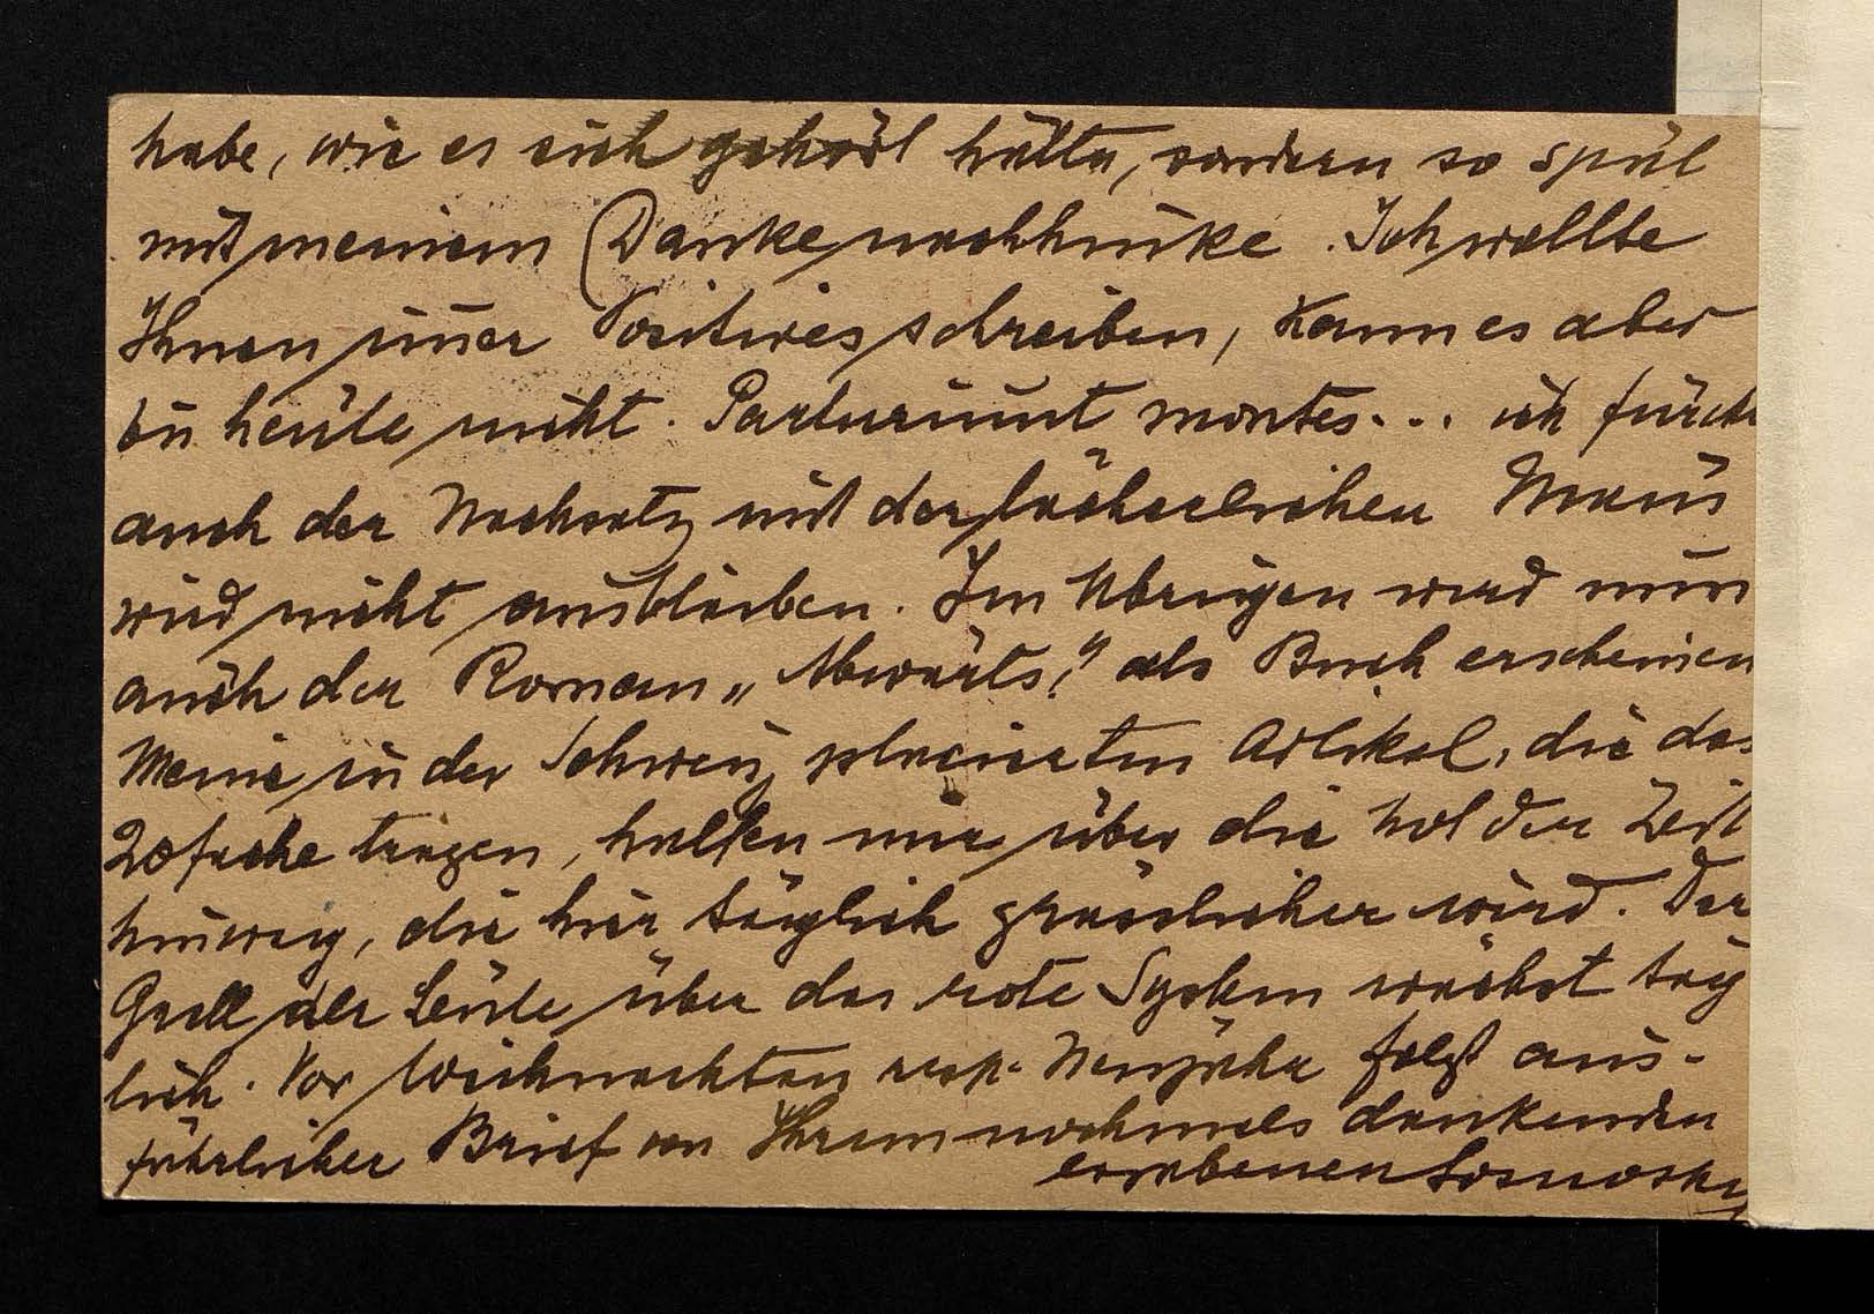 habe, wie es sich gehört hätte, sondern so spät
mit meinem Danke nachhinke. Ich wollte
Ihnen im̄er Positives schreiben, kann es aber
bis heute nicht. Parturiunt montes... ich fürcht
auch der Nachsatz mit der lächerlichen Maus
wird nicht ausbleiben. Im Übrigen wird nun
auch der Roman „Abwärts?" als Buch erscheinen
Meine in der Schweiz placierten Artikel, die das
20fache tragen, helfen mir über die holde Zeit
hinweg, die hier täglich grässlicher wird. Der
Groll der Leute über das rote System wächst täg
lich. Vor Weihnachten resp. Neujahr folgt aus-
führlicher Brief von Ihrem nochmals dankenden
ergebenen Sosnosky